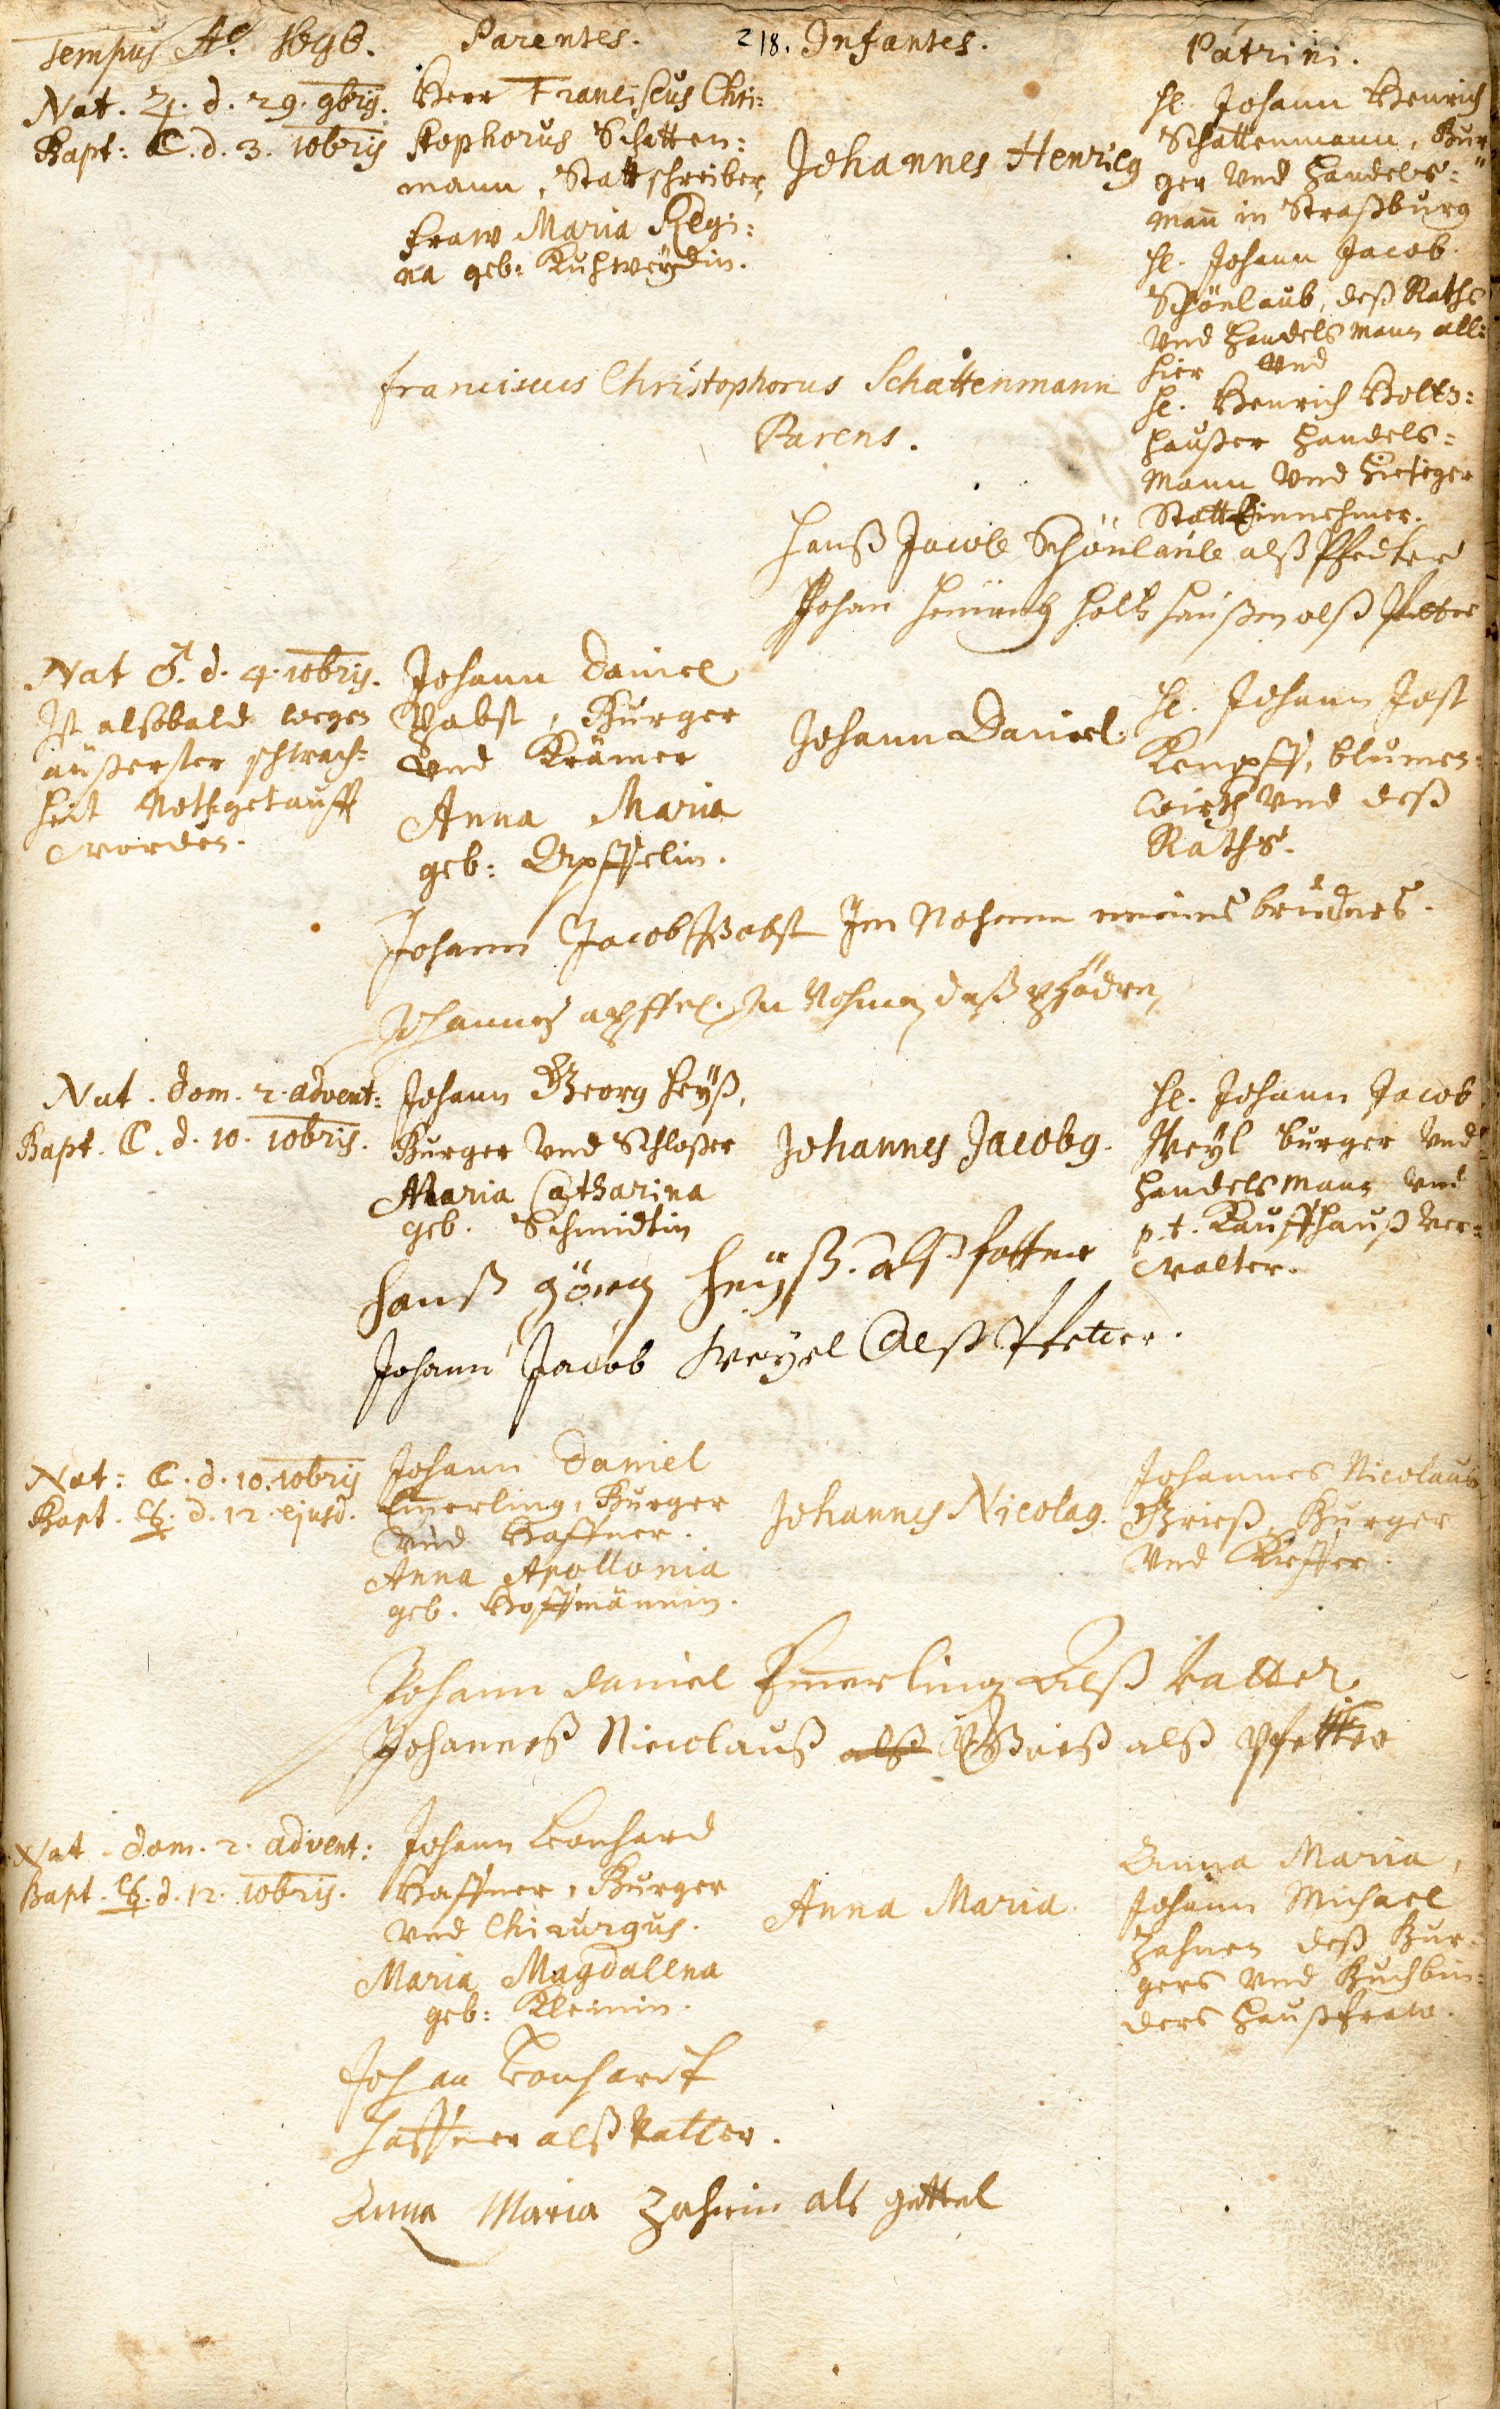 Tempus Aō 1696.
Parentes.
218. Infantes.
Patrini.
Nat. ♃. d. 29. 9bris.
Bapt: ☾. d. 3. 10bris
Herr Franciscus Chri=
stophorus Schatten=
mann, Stattschreiber,
fraw Maria Regi=
na geb: Kuhweydin.
Johannes Henricg
H. Johann Henrich
Schattenmann, Bur
ger Vnd Handels=
mañ in Straßburg
H. Johann Jacob
Schönlaub, deß Raths
Vnd Handelsmann all=
hier Vnd
H. Henrich Holtz=
haußer Handels=
mann Vnd hießiger
Statt Einnehmer.
franciscus Christophorus Schattenmann
Parens.
Hanß Jacob Schönlaub alß Pfetter
Johan Heinrich Holtzhaußen alß Petter
Nat ♂. d. 4. 10bris.
Ist alßobald wegen
äußerster schwach=
heit Nothgetaufft
worden.
Johann Daniel
Pabst, Burger
Vnd Krämer
Anna Maria
geb: Apffelin.
Johann Daniel
H. Johann Jost
Kempff, blumen=
wirth Vnd deß
Raths.
Johann Jacob Pabst Im Nahmen meines bruders.
Johannes apffel. In Nahmen deß
Nat. dom. 2. advent:
Bapt. ☾. d. 10. 10bris.
Johann Georg Heyß,
Burger Vnd Schloßer
Maria Catharina
geb. Schmidtin
Johannes Jacobg.
H. Johann Jacob
Weyl burger Vnd
Handelsmann Vnd
p. t. Kauffhauß Ver=
walter.
Hanß görg Heyß. alß fatter
Johann Jacob Weyel Alß Pfetter.
Nat: ☾. d. 10. 10bris
Bapt. ☿. d. 12. ejusd.
Johann Daniel
Em̄erling, Burger
Vnd Haffner.
Anna Apollonia
geb. Hoffmännin.
Johannes Nicolag.
Johannes Nicolaus
Grieß, Burger
Vnd Kieffer.
Johann Daniel Em̄erling Alß Vatter
Johanneß Nicolauß alß Grieß alß Pfetter
Nat. dom. 2. advent:
Bapt. ☿. d. 12. 10bris.
Johann Leonhard
Haffner, Burger
Vnd Chirurgus.
Maria Magdalena
geb: Kleinin.
Anna Maria.
Anna Maria,
Johann Michael
Zahnen deß Bur=
gers Vnd Buchbin=
ders Haußfraw.
Johan Leonhardt
Haffner alß Vatter.
Anna Maria Zahnin als gettel